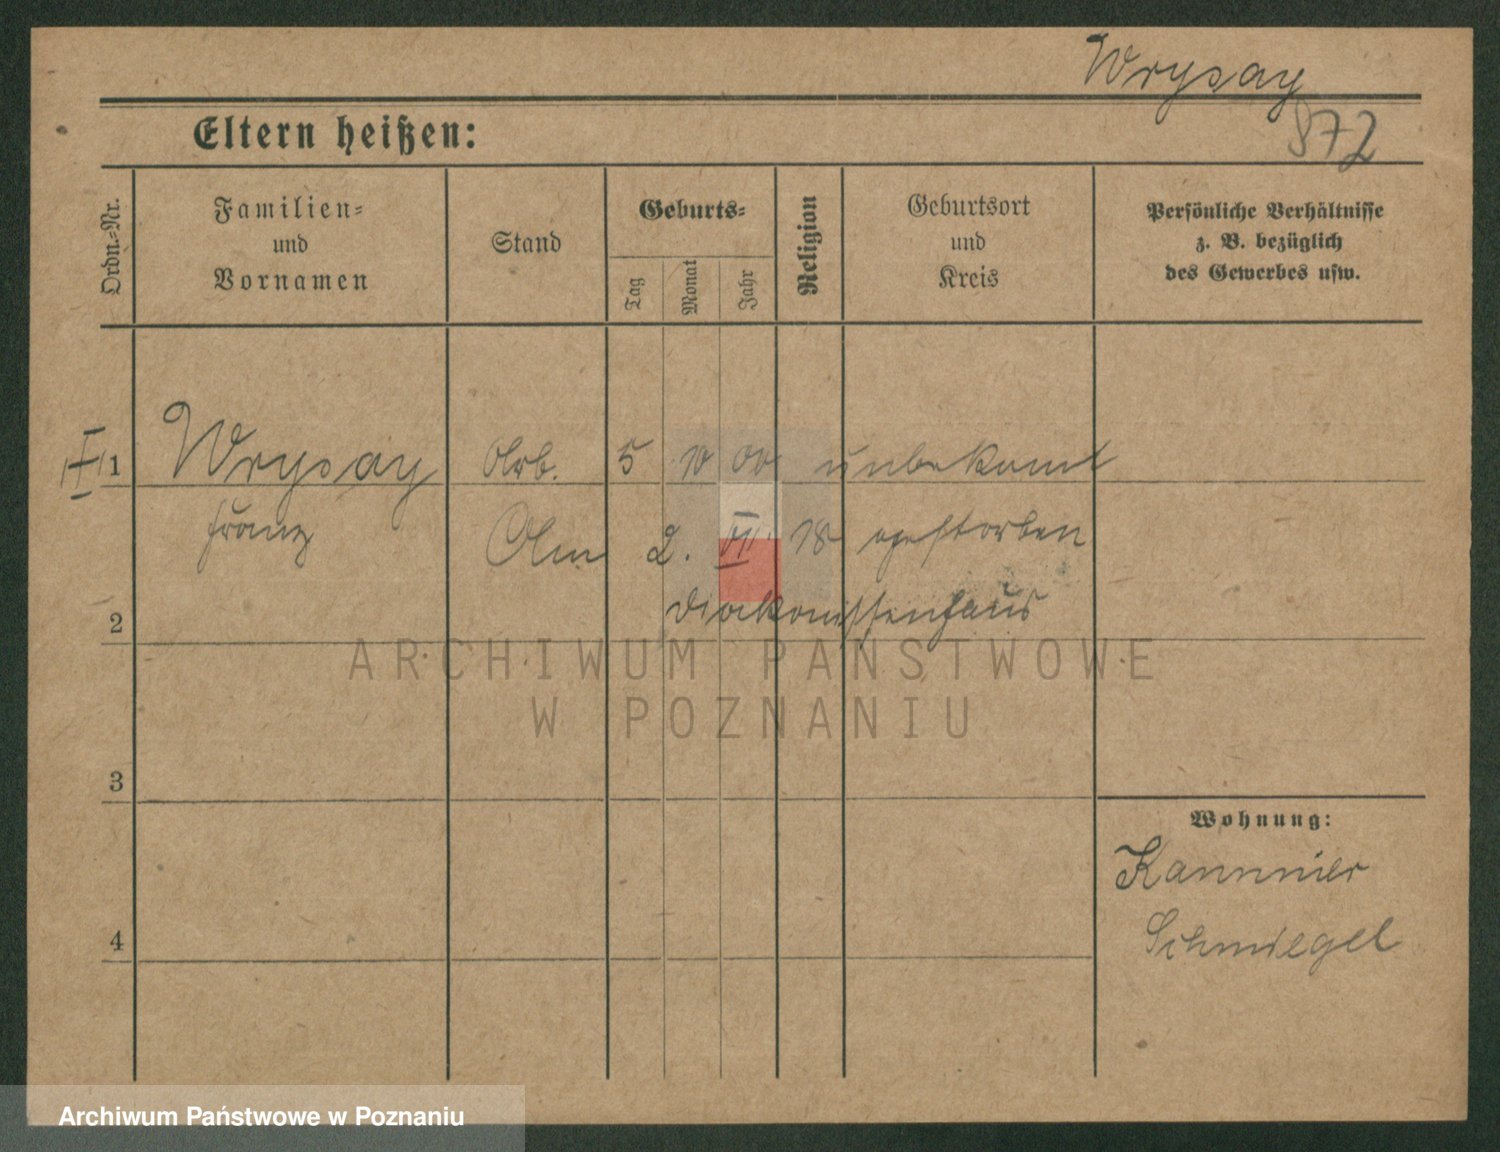 Wrysay
Eltern heißen:
872
Ordn.-Nr.
Familien-
und
Vornamen
Stand
Geburts-
Tag
Monat
Jahr
Religion
Geburtsort
und
Kreis
Persönliche Verhältnisse
z. B. bezüglich
des Gewerbes usw.
1 Wrysay Arb. 5 10 00 unbekannt
Franz Am 2. VII 18 gestorben
Diakonissenhaus
2
ARCHIWUM PAŃSTWOWE
W POZNANIU
3
Wohnung:
Schmiegel
4
Archiwum Państwowe w Poznaniu